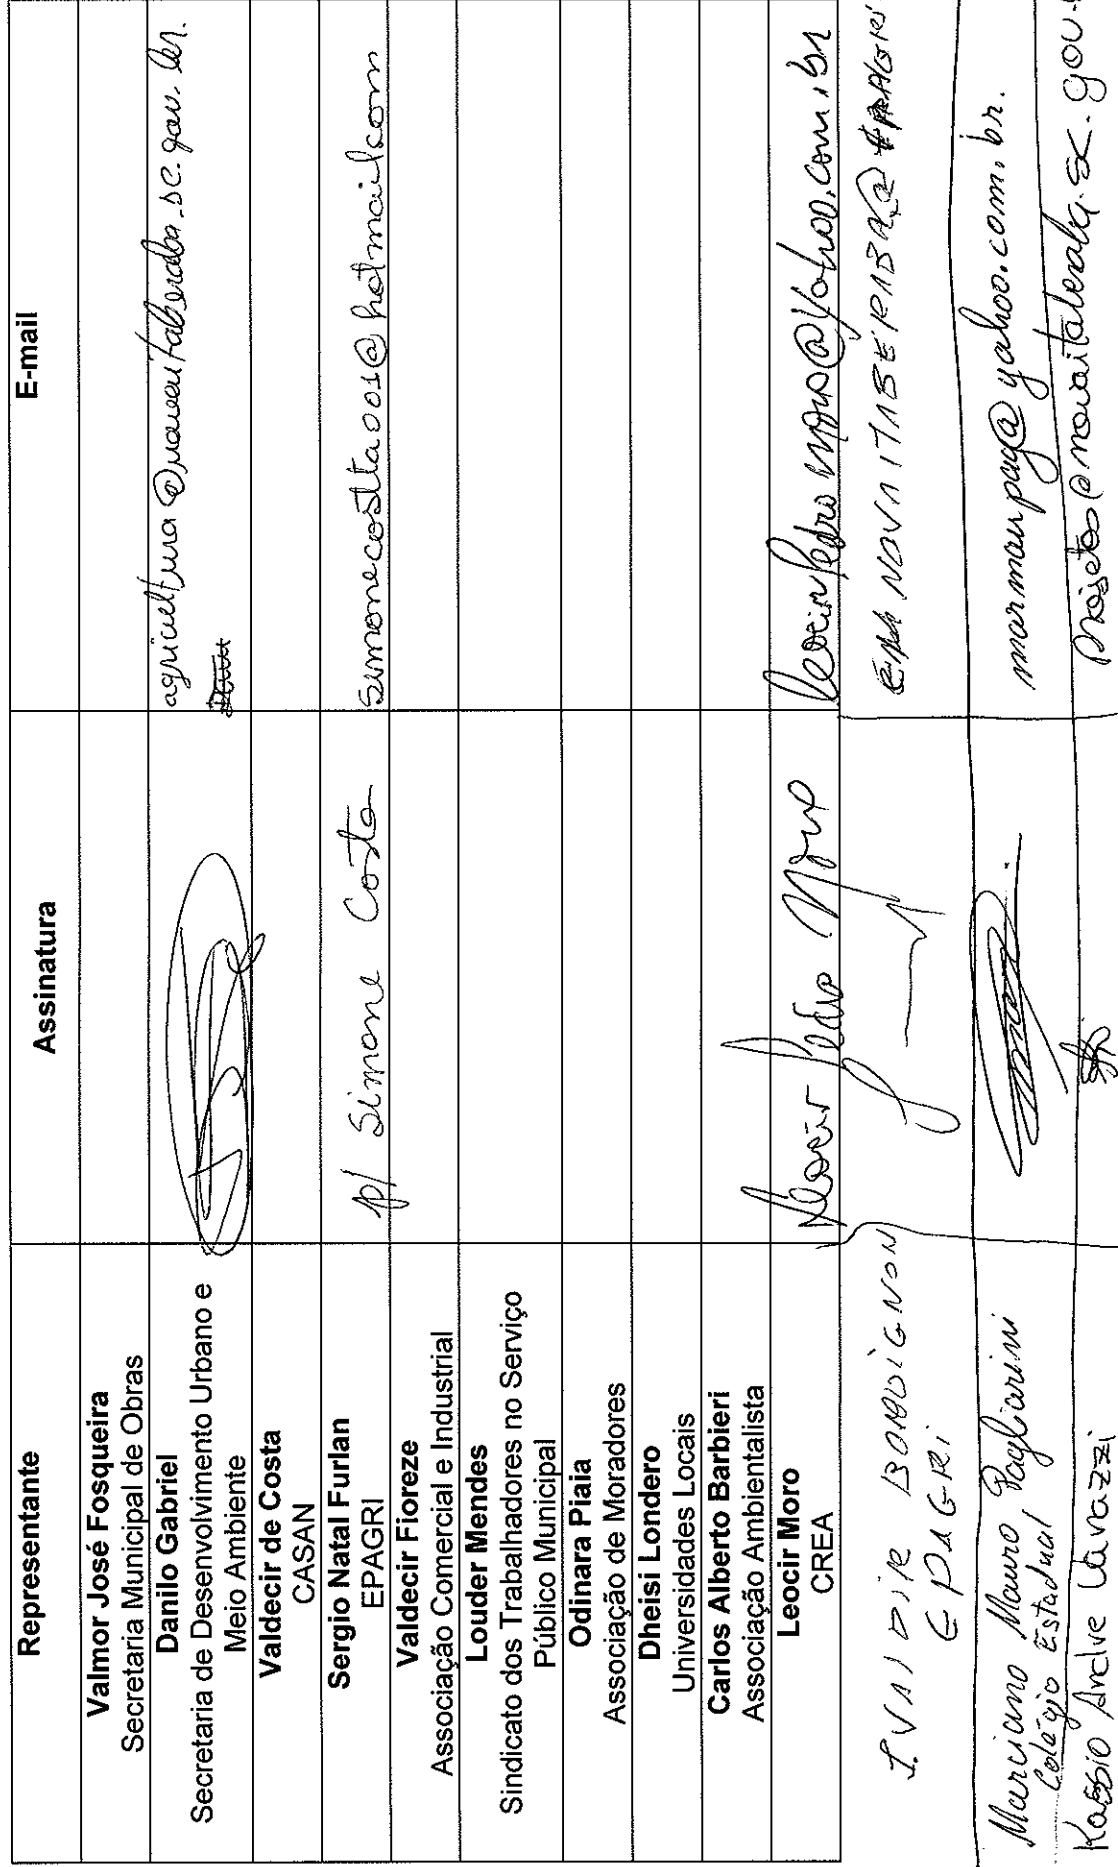 Representante Assinatura E-mail
Valmor José Fosqueira
Secretaria Municipal de Obras
Danilo Gabriel
Secretaria de Desenvolvimento Urbano e
Meio Ambiente
agricultura@novaitaberaba.sc.gov.br.
Valdecir de Costa
CASAN
Sergio Natal Furlan
EPAGRI
p/ Simone Costa simonecostta001@hotmail.com
Valdecir Fioreze
Associação Comercial e Industrial
Louder Mendes
Sindicato dos Trabalhadores no Serviço
Público Municipal
Odinara Piaia
Associação de Moradores
Dheisi Londero
Universidades Locais
Carlos Alberto Barbieri
Associação Ambientalista
Leocir Moro
CREA
Leocir Pedro Moro leocirpedromoro@yahoo.com.br
IVALDIR BORDIGNON
EPAGRI
NOVAITABERABA@
Marciano Mauro Pagliarini
Colégio Estadual
marmaupag@yahoo.com.br.
Kassio Andre Lavazzi projetos@novaitaberaba.sc.gov.